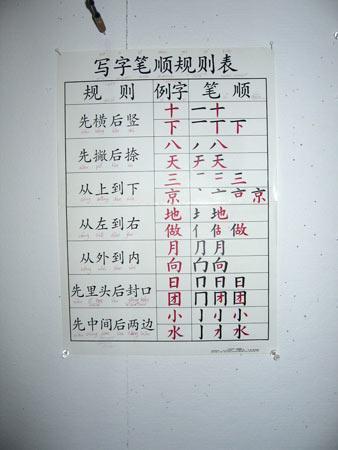 写字笔顺规则表
规 则 例字 笔 顺
先横后竖 十 一 十
下 一 丅 下
先撇后捺 八 丿 八
天 天
从上到下 三 一 二 三
京 亠 京
从左到右 地 地
做 亻 估 做
从外到内 月 冂 月
向 向
先里头后封口 日 冂 日 日
团 冂 团 团
先中间后两边 小 亅 小 小
水 亅 水 水